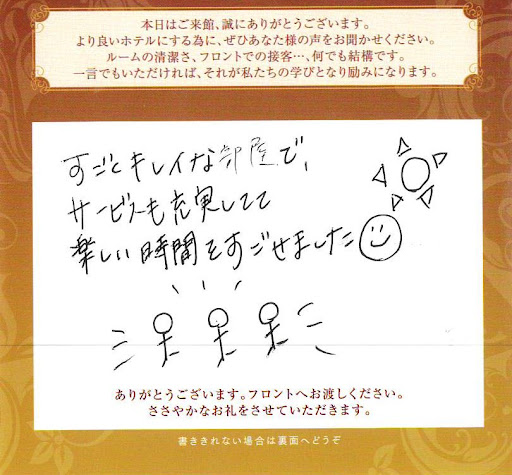 本日はご来館、誠にありがとうございます。
より良いホテルにする為に、ぜひあなた様の声をお聞かせください。
ルームの清潔さ、フロントでの接客…、何でも結構です。
一言でもいただければ、それが私たちの学びとなり励みになります。
すごくキレイな部屋で、
サービスも充実してて
楽しい時間をすごせました
ありがとうございます。フロントへお渡しください。
ささやかなお礼をさせていただきます。
書ききれない場合は裏面へどうぞ